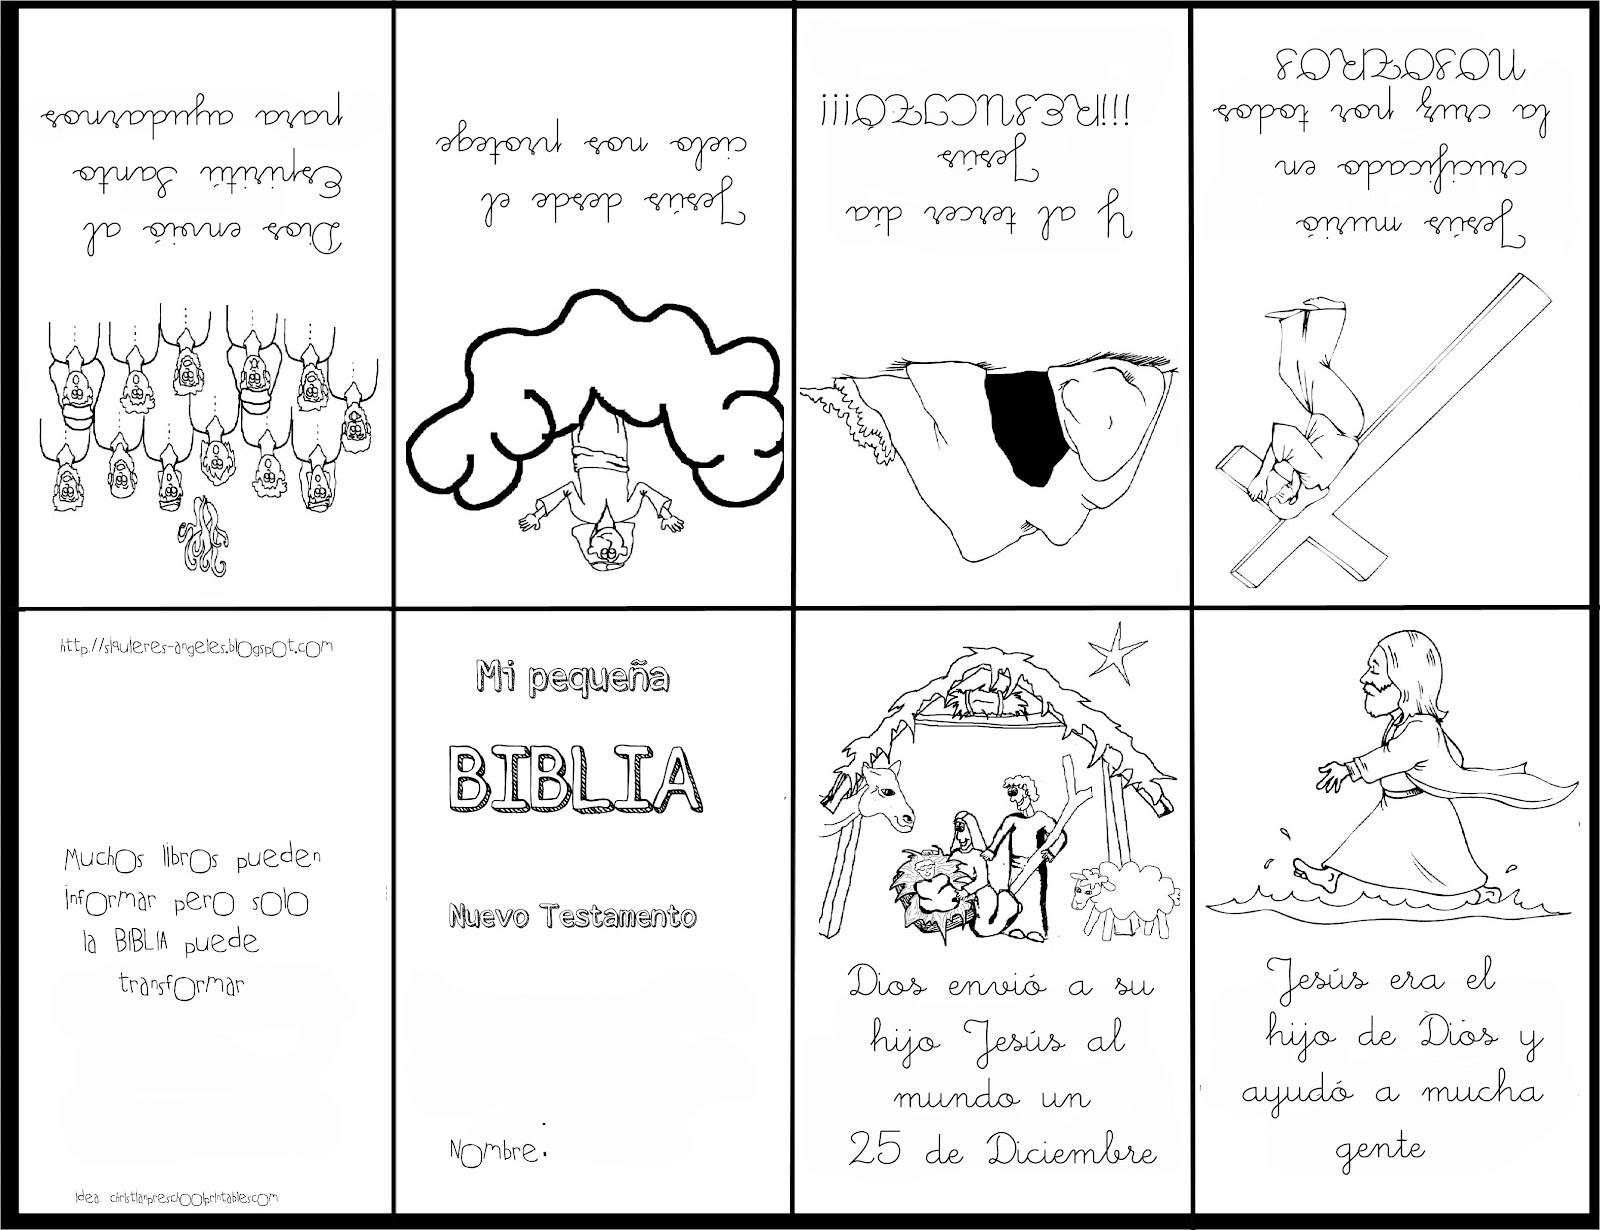 Dios envió al
Espiritú Santo
para ayudarnos
Jesús desde el
cielo nos protege
Y al tercer día
Jesús
¡¡¡RESUCITÓ!!!
Jesús murió
crucificado en
la cruz por todos
NOSOTROS
http://siquieres-angeles.blogspot.com
Muchos libros pueden
informar pero solo
la BIBLIA puede
transformar
Idea: christianpreschoolprintables.com
Mi pequeña
BIBLIA
Nuevo Testamento
Nombre:
Dios envió a su
hijo Jesús al
mundo un
25 de Diciembre
Jesús era el
hijo de Diós y
ayudó a mucha
gente